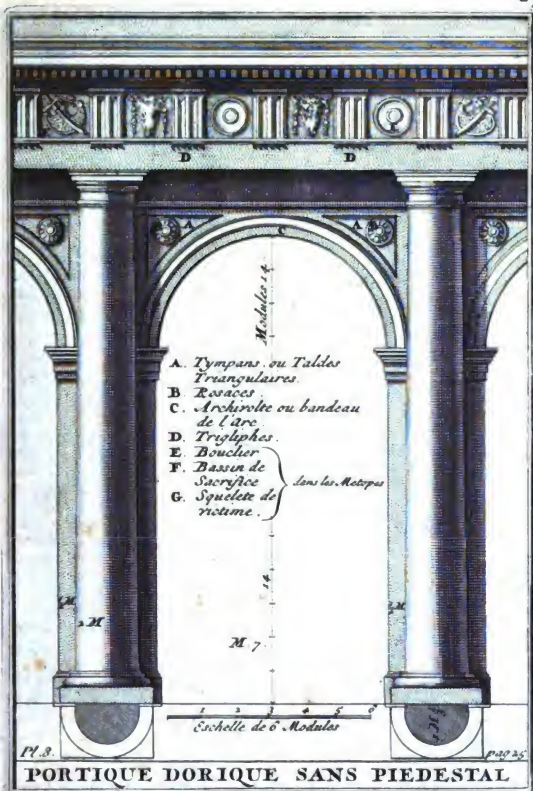 D D
A C A B
Modules 14
A. Tympans. ou Taldes
Triangulaires.
B. Rosaces.
C. Archivolte ou bandeau
de l'arc.
D. Trigliphes.
E. Bouclier
F. Bassin de
Sacrifice
G. Squelete de
victime.
dans les Metopes
14
2 M
M 7
1 2 3 4 5 6
Eschelle de 6 Modules
Pl. 8.
pag 25
PORTIQUE DORIQUE SANS PIEDESTAL